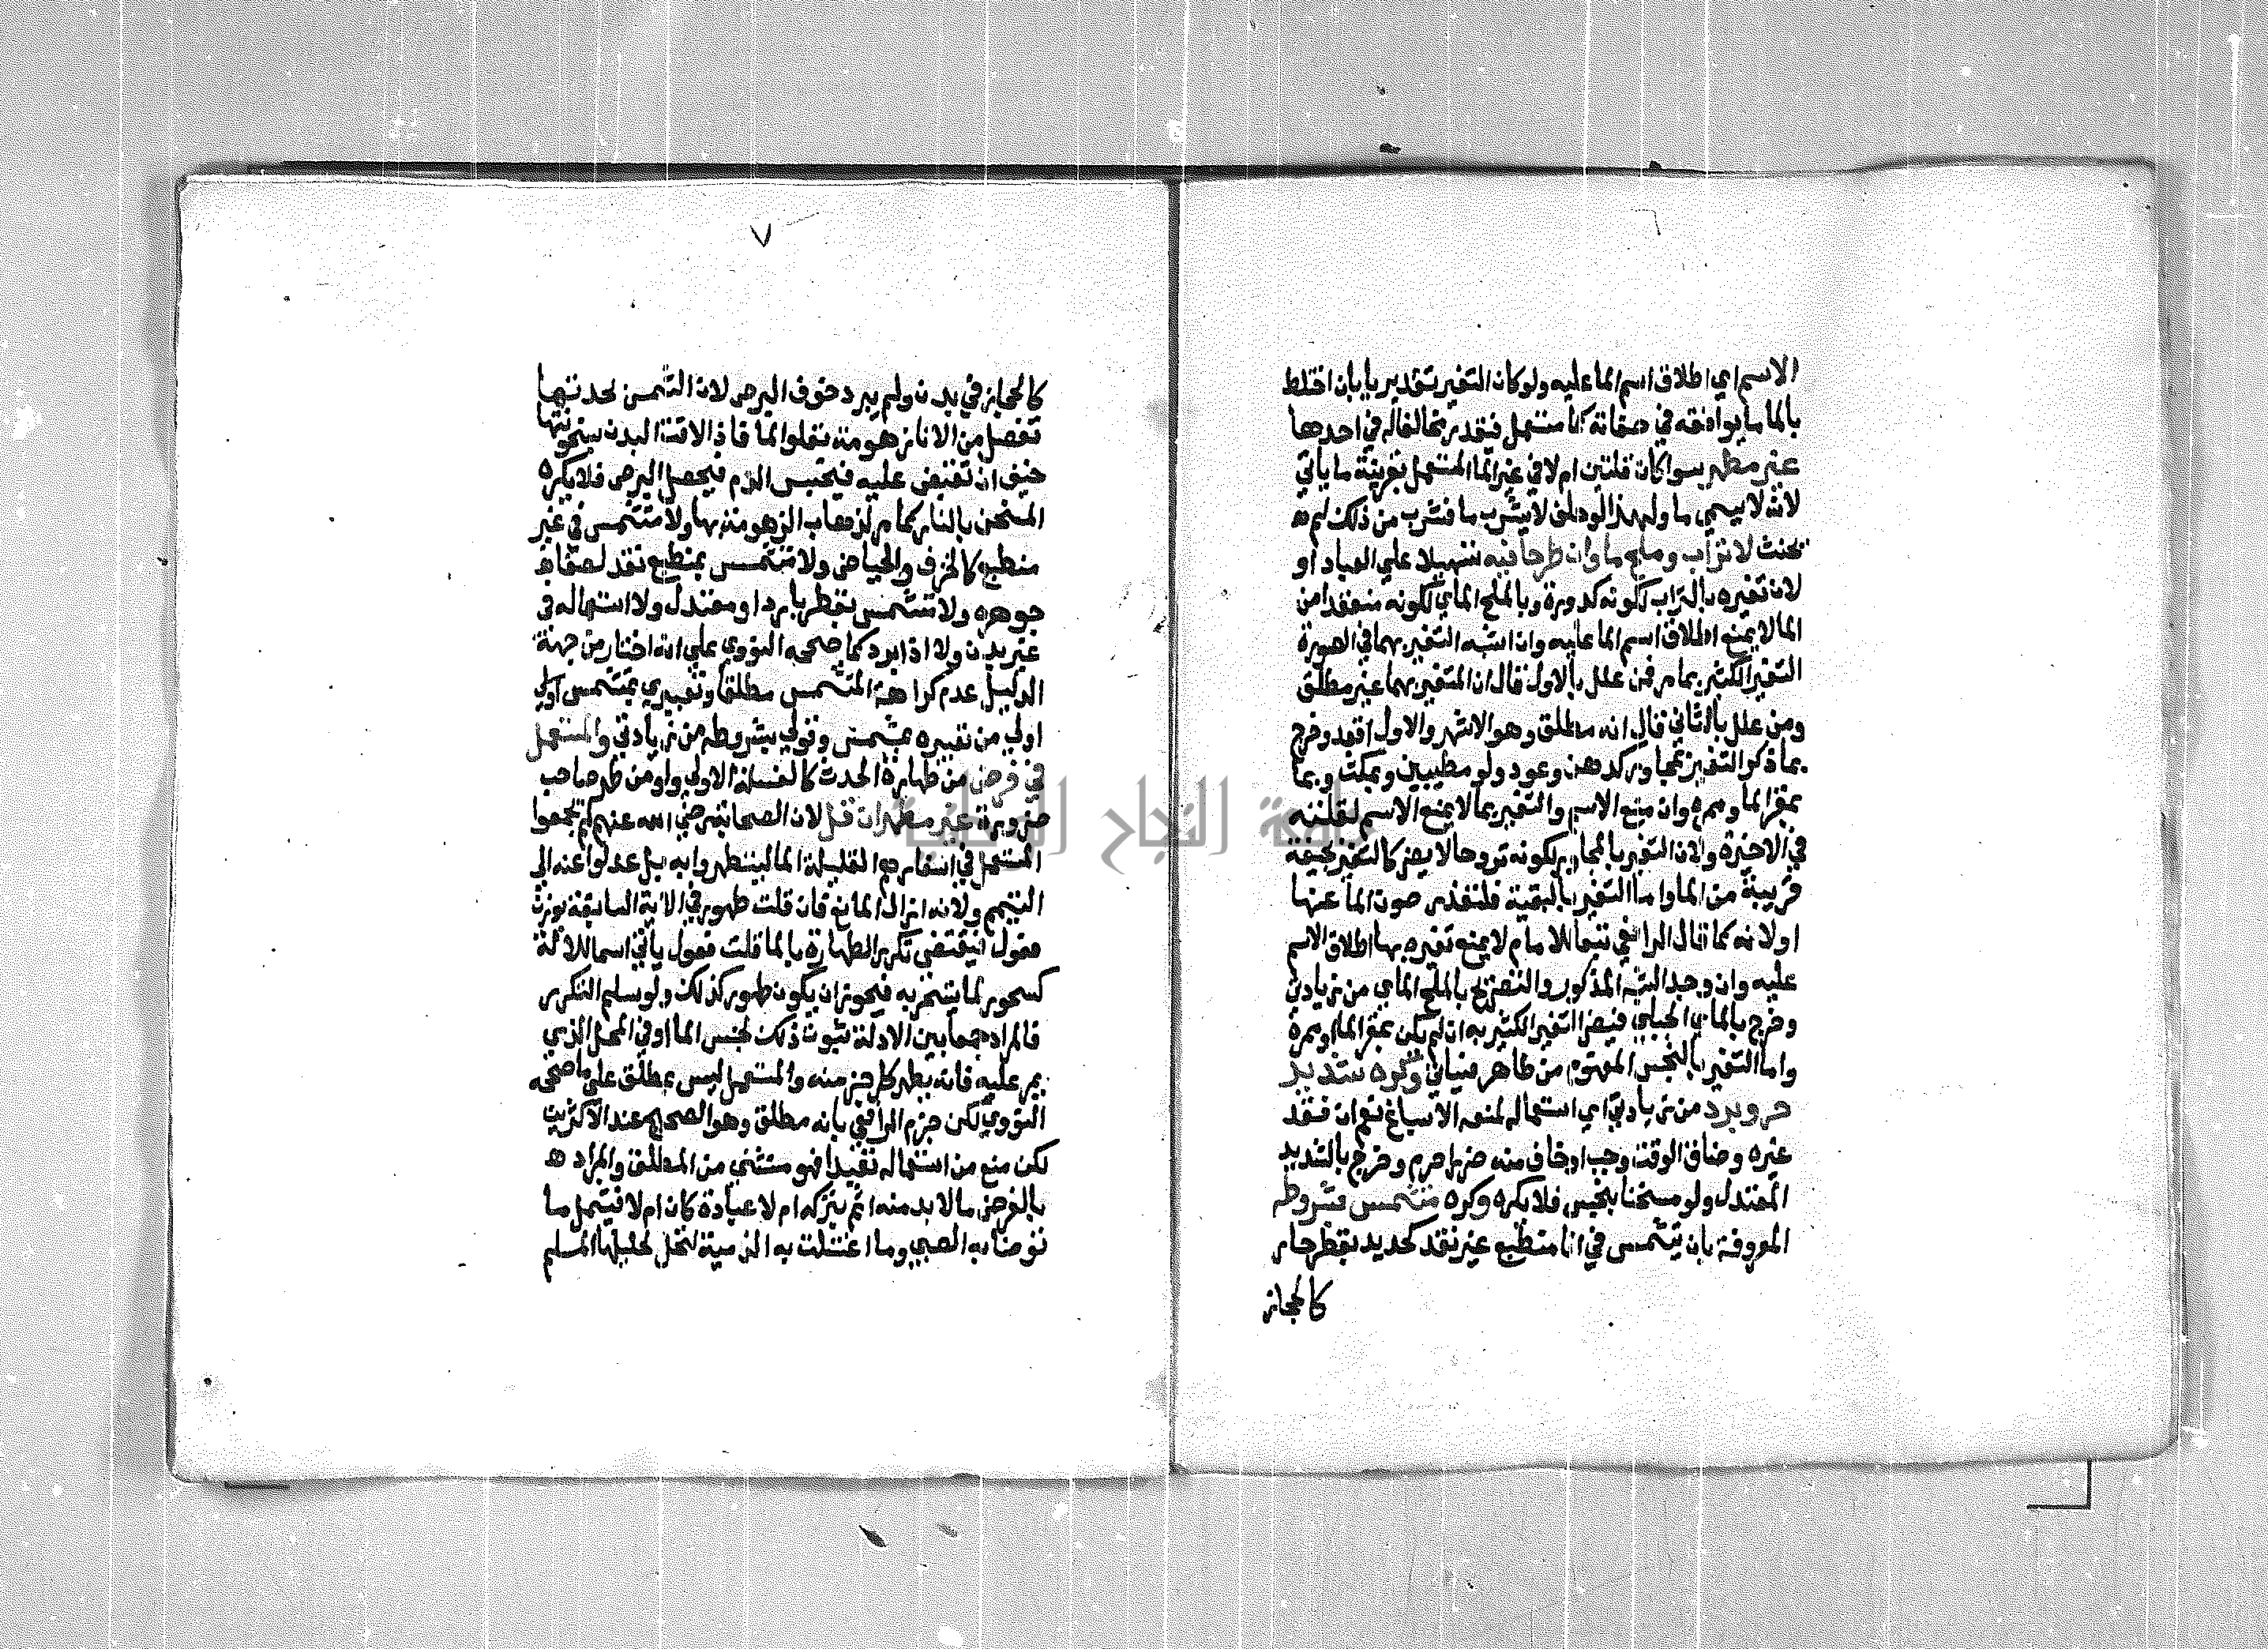 الاسم اي اطلاق اسم الما عليه ولو كان التغير تقديريا بان اختلط
بالما ما يوافقه في صفاته كما مستعمل فيقدر مخالفا له في احدها
غير مطهر سوا كان قلتين ام لا في غير الما المستعمل بقرينة ما ياتي
لانه لا يسمى ما ولهذا لو حلف لا يشرب ما فشرب من ذلك لم
يحنث لا تراب وملح ما وان طرحا فيه تسهيلا علي العباد او
لان تغيره بالتراب لكونه كدورة وبالملح المائي لكونه منعقدا من
الما لا يمنع اطلاق اسم الما عليه وان اشبه التغير بهما في الصورة
التغير الكثير بما مر فمن علل بالاول قال ان المتغير بهما غير مطلق
ومن علل بالثاني قال انه مطلق وهو الاشهر والاول اقعد وخرج
بما ذكر التغير بمجاور كدهن وعود ولو مطيبين وبمكث وبما
بمقر الما وممره وان منع الاسم والتغير بما لا يمنع الاسم لقلته
في الاخيرة ولان التغير بالمجاور لكونه تروحا لا يضر كالتغير بجيفة
قريبة من الما واما التغير بالبقية فلتعذر صون الما عنها
او لانه كما قال الرافعي تبعا للامام لا يمنع تغيره بها اطلاق الاسم
عليه وان وجد الشبه المذكور والتصريح بالملح المائي من زيادتي
وخرج بالمائي الجبلي فيضر التغير الكثير به ان لم يكن بمقر الما او ممره
واما التغير بالنجس المفهوم من طاهر فسياتي وكره شديد
حر وبرد من زيادتي اي استعماله لمنعه الاسباغ نعم ان فقد
غيره وضاق الوقت وجب او خاف منه ضررا حرم وخرج بالشديد
المعتدل ولو مسخنا بنجس فلا يكره وكره متشمس بشروطه
المعروفة بان يتشمس في انا منطبع غير نقد كحديد بقطر حار
كالحجاز
٧
كالحجاز في بدن ولم يبرد خوف البرص لان الشمس بحدتها
تفصل من الانا زهومة تعلو الما فاذا لاقت البدن بسخونتها
خيف ان تقبض عليه فيحتبس الدم فيحصل البرص فلا يكره
المسخن بالنار كما مر لذهاب الزهومة بها ولا متشمس في غير
منطبع كالخزف والحياض ولا متشمس بمنطبع نقد لصفا
جوهره ولا متشمس بقطر بارد او معتدل ولا استعماله في
غير بدن ولا اذا برد كما صححه النووي علي انه اختار من جهة
الدليل عدم كراهة المتشمس مطلقا وتعبيري بمتشمس اولي
اولي من تعبيره بمشمس وقولي بشروطه من زيادتي والمستعمل
في فرض من طهارة الحدث كالغسلة الاولي ولو من طهر صاحب
ضرورة غير مطهر ان قل لان الصحابة رضي الله عنهم لم يجمعوا
المستعمل في اسفارهم القليلة الما ليتطهروا به بل عدلوا عنه الي
التيمم ولانه ازال المانع فان قلت طهور في الاية السابقة بوزن
فعول فيقتضي تكرر الطهارة بالما قلت فعول ياتي اسما للالة
كسحور لما يتسحر به فيجوز ان يكون طهور كذلك ولو سلم التكرر
فالمراد جمعا بين الادلة ثبوت ذلك لجنس الما او في المحل الذي
يمر عليه فانه يطهر كل جزء منه والمستعمل ليس بمطلق علي ما صححه
النووي لكن جزم الرافعي بانه مطلق وهو الصحيح عند الاكثرين
لكن منع من استعماله تعبدا فهو مستثني من المطلق والمراد
بالفرض ما لا بد منه اثم بتركه ام لا عبادة كان ام لا فيشمل ما
توضا به الصبي وما اغتسلت به الذمية لتحل لحليلها المسلم